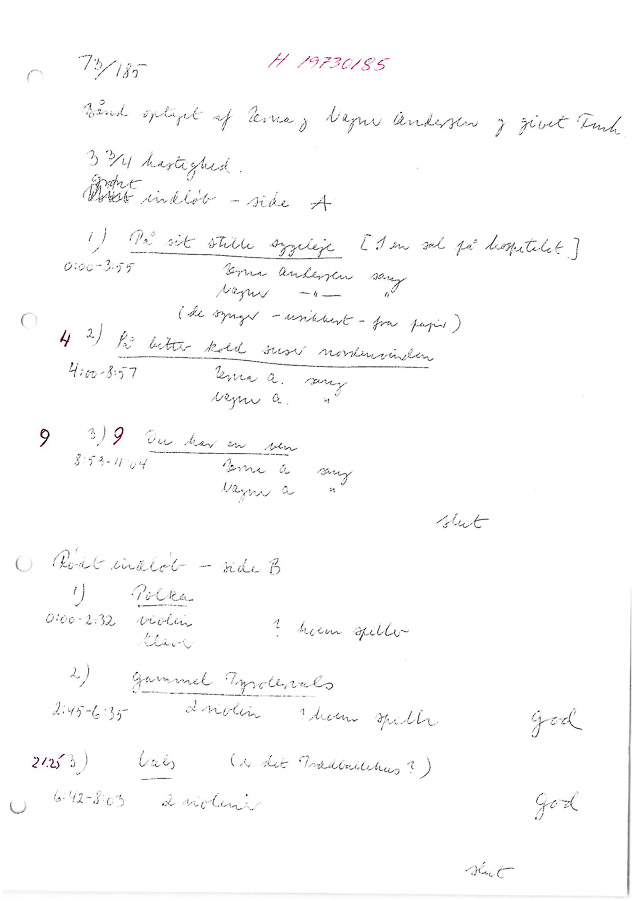 73/185
H 19730185
Bånd optaget af Erna og Vagner Andersen og givet Tmh
3 3/4 hastighed.
grønt
indløb - side A
1) På sit stille sygeleje [I en sal på hospitalet]
0:00-3:55 Erna Andersen sang
Vagner -"- "
(de synger - usikkert - fra papir)
4 2) På hitter kold suser nordenvinden
4:00-8:57 Erna A. sang
Vagner A. "
9 3) 9 Du har en ven
8:53-11:04 Erna A sang
Vagner A "
slut
Rødt indløb - side B
1) Polka
0:00-2:32 violin ? hvem spiller
klaver
2) Gammel Tyrolervals
2:45-6:35 2 violin ? hvem spiller god
21.25 3) Vals (er det Trædballehus?)
6:42-8:03 2 violiner god
slut